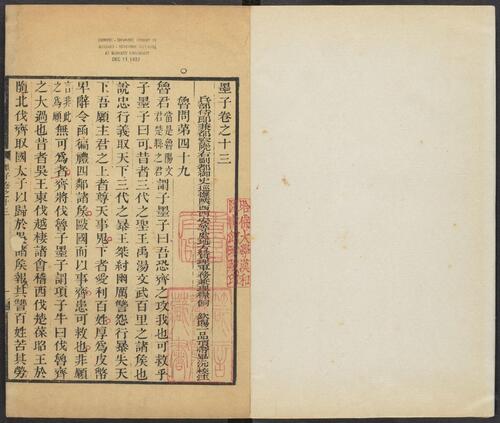 CHINESE - JAPANESE LIBRARY OF
HARVARD - YENCHING INSTITUTE
AT HARVARD UNIVERSITY
DEC 11 1937
墨子卷之十三
兵部侍郎兼都察院右副都御史巡撫陝西西安等處地方贊理軍務兼理糧餉 欽賜一品頂帶畢沅校注
魯問第四十九
魯君當是魯陽文君楚縣之君謂子墨子曰吾恐齊之攻我也可救乎
子墨子曰可昔者三代之聖王禹湯文武百里之諸矦也
說忠行義取天下三代之暴王桀紂幽厲讐怨行暴失天
下吾願主君之上者尊天事鬼下者愛利百姓厚為皮幣
卑辭令亟徧禮四鄰諸矦敺國而以事齊患可救也非願
無可為者齊將伐魯子墨子謂項子牛曰伐魯齊
之大過也昔者吳王東伐越棲諸會稽西伐楚葆昭王於
隨北伐齊取國太子以歸於吳諸矦報其讐百姓苦其勞
哈佛大學漢和圖書館珍藏印